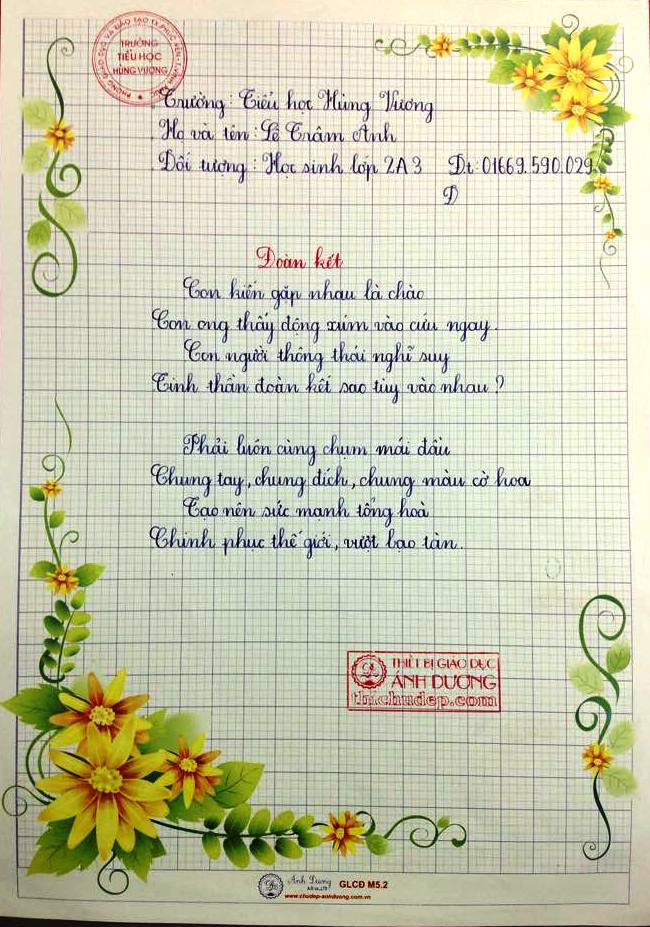 PHÒNG GIÁO DỤC VÀ ĐÀO TẠO TX.PHÚC YÊN - T.VĨNH PHÚC
TRƯỜNG
TIỂU HỌC
HÙNG VƯƠNG
Trường: Tiểu học Hùng Vương
Họ và tên: Lê Trâm Anh
Đối tượng: Học sinh lớp 2A3 Đt: 01669.590.029
Đ
Đoàn kết
Con kiến gặp nhau là chào
Con ong thấy động xúm vào cứu ngay.
Con người thông thái nghĩ suy
Tinh thần đoàn kết sao tùy vào nhau?
Phải luôn cùng chụm mái đầu
Chung tay, chung đích, chung màu cờ hoa
Tạo nên sức mạnh tổng hoà
Chinh phục thế giới, vượt bạo tàn.
THIẾT BỊ GIÁO DỤC
ÁNH DƯƠNG
thichudep.com
Ánh Dương
GLCĐ M5.2
www.chudep-anhduong.com.vn